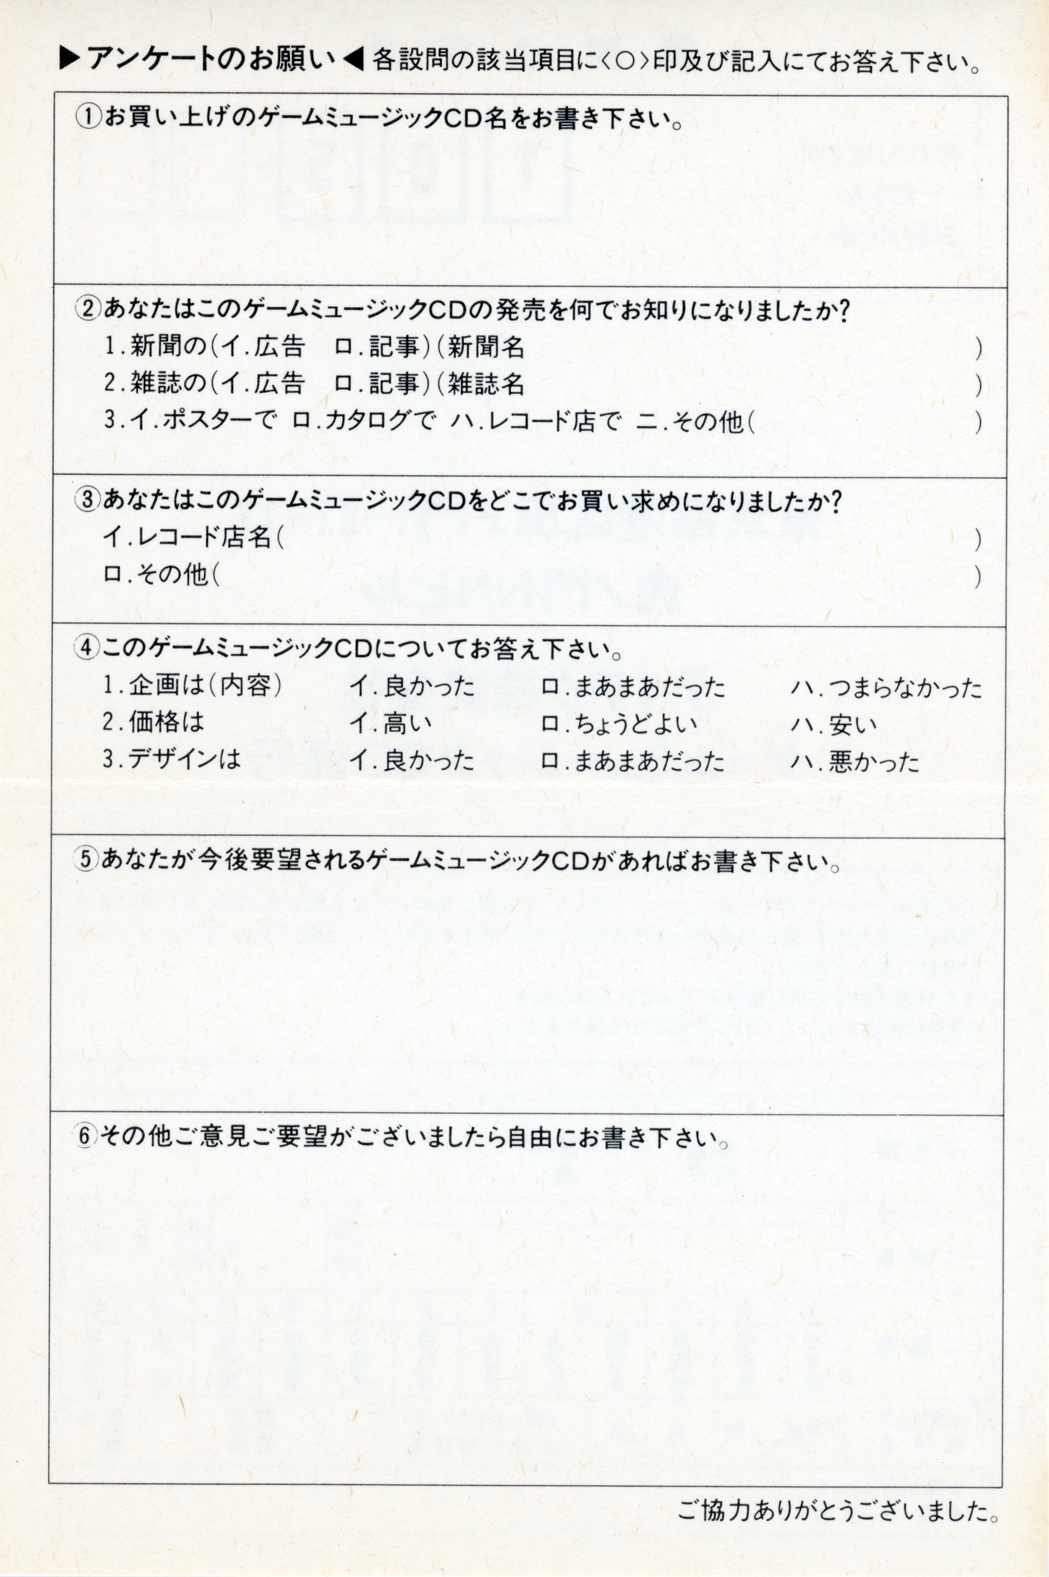 ▶アンケートのお願い◀各設問の該当項目に〈○〉印及び記入にてお答え下さい。
①お買い上げのゲームミュージックCD名をお書き下さい。
②あなたはこのゲームミュージックCDの発売を何でお知りになりましたか?
1.新聞の(イ.広告　ロ.記事)(新聞名　　　　　)
2.雑誌の(イ.広告　ロ.記事)(雑誌名　　　　　)
3.イ.ポスターで ロ.カタログで ハ.レコード店で ニ.その他(　　　　　)
③あなたはこのゲームミュージックCDをどこでお買い求めになりましたか?
イ.レコード店名(　　　　　)
ロ.その他(　　　　　)
④このゲームミュージックCDについてお答え下さい。
1.企画は(内容)　イ.良かった　ロ.まあまあだった　ハ.つまらなかった
2.価格は　イ.高い　ロ.ちょうどよい　ハ.安い
3.デザインは　イ.良かった　ロ.まあまあだった　ハ.悪かった
⑤あなたが今後要望されるゲームミュージックCDがあればお書き下さい。
⑥その他ご意見ご要望がございましたら自由にお書き下さい。
ご協力ありがとうございました。